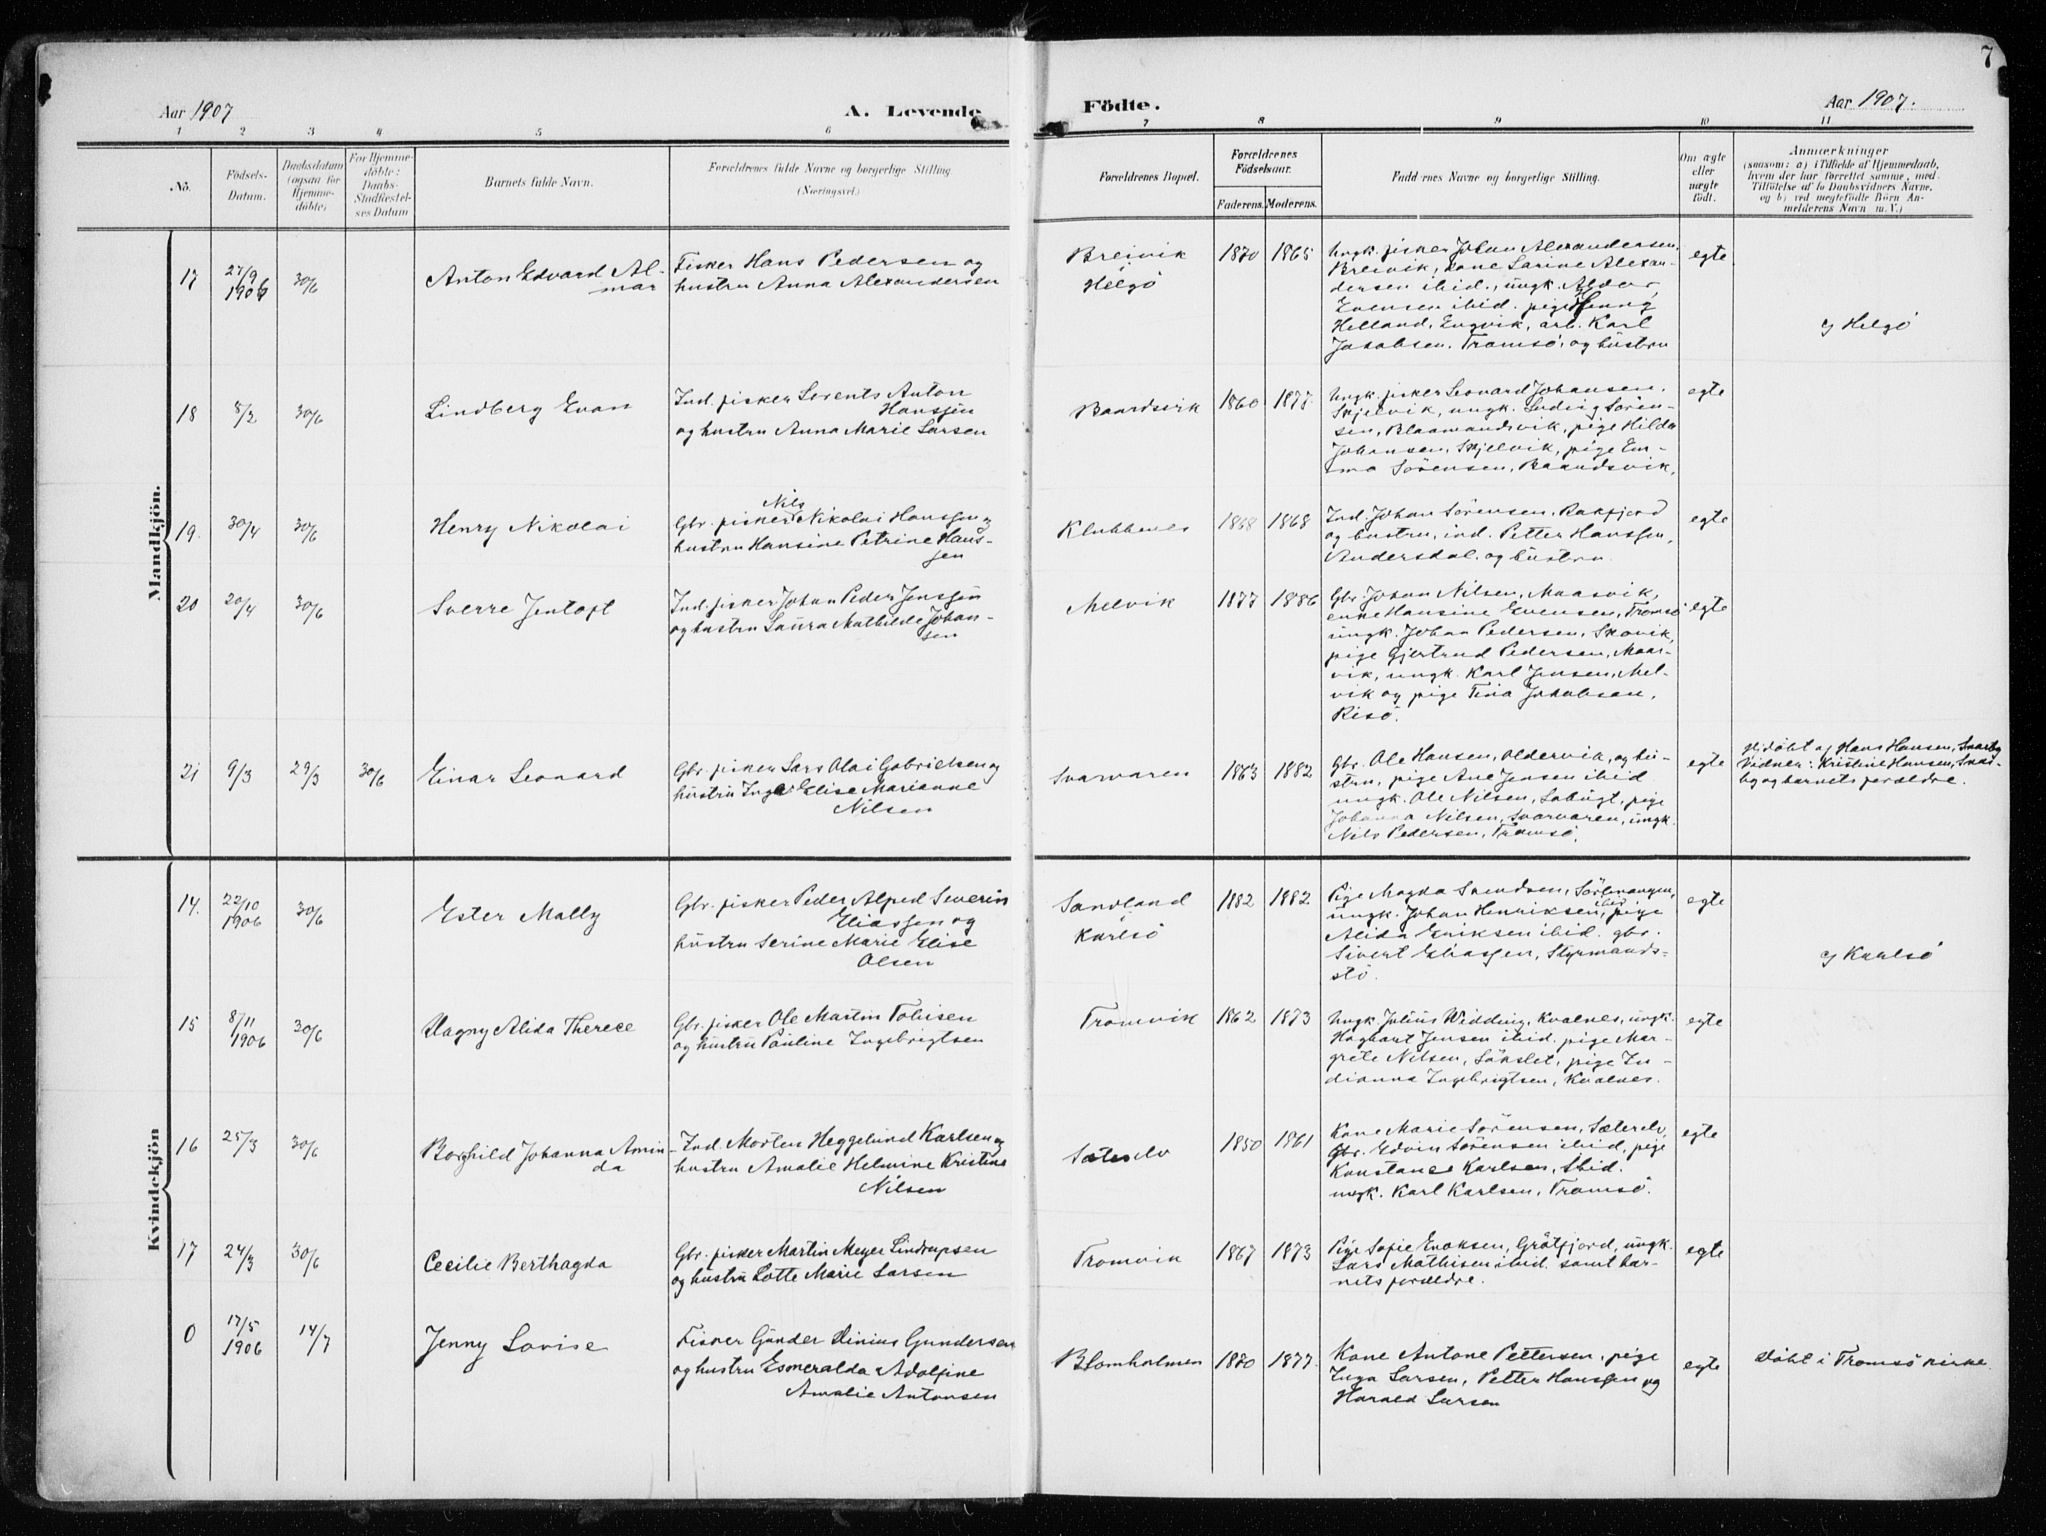 7
Aar 1907
A. Levende
Födte.
Aar 1907.
1 2 3 4 5 6 7 8 9 10 11
No.
Födsels-
Datum.
Daabsdatum
(ogsaa for
Hjemme-
döbte)
For Hjemme-
döbte:
Daabs-
Stadfæstel-
ses Datum
Barnets fulde Navn.
Forældrenes fulde Navne og borgerlige Stilling.
(Næringsvei.)
Forældrenes Bopæl.
Forældrenes
Födselsaar.
Faderens. Moderens.
Faddernes Navne og borgerlige Stilling.
Om ægte
eller
uægte
födt.
Anmærkninger
(saasom: a) i Tilfælde af Hjemmedaab,
hvem der har forrettet samme, med
Tilföielse af to Daabsvidners Navne,
og b) ved uegtefödte Börn An-
melderens Navn m. V.)
Mandkjön.
17
27/9
1906
30/6
Anton Edvard Al-
mar
Fisker Hans Pedersen og
hustru Anna Alexandersen
Breivik
Helgö
1870 1865
Ungk. fisker Johan Alexandersen,
Breivik, kone Sarine Alexan-
dersen ibid., ungk. Aldor
Evensen ibid. pige Jenny
Helland, Engvik, arb. Karl
Jakobsen, Tromsö, og hustru
egte
cj Helgö
18
8/2
30/6
Lindberg Evan
Ind. fisker Lorents Anton
Hanssen
og hustru Anna Marie Larsen
Baardsvik
1860 1877
Ungk. fisker Leonard Johansen,
Skjelvik, ungk. Ludvig Sören-
sen, Blaamandsvik, pige Hilda
Johansen, Skjelvik, pige Em-
ma Sörensen, Baardsvik.
egte
19.
30/4
30/6
Henry Nikolai
Nils
Gbr. fisker Nikolai Hanssen og
hustru Hansine Petrine Hans-
sen
Klubbenes
1868 1868
Ind. Johan Sörensen, Rakfjord
og hustru, ind. Petter Hanssen,
Andersdal. og hustru.
egte
20
20/4
30/6
Sverre Jentoft
Ind. fisker Johan Peder Jenssen
og hustru Laura Mathilde Johan-
sen
Melvik
1877 1886
Gbr. Johan Nilsen, Maasvik,
enke Hansine Evensen, Tromsö
ungk. Johan Pedersen, Skovik,
pige Gjertrud Pedersen, Maas-
vik, ungk. Karl Jensen, Mel-
vik og pige Tina Jakobsen,
Risö.
egte
21
9/3
29/3
30/6
Einar Leonard
Gbr. fisker Lars Olai Gabrielsen og
hustru Inga Elise Marianne
Nilsen
Svarvaren
1863 1882
Gbr. Ole Hansen, Oldervik, og hu-
stru, pige Ane Jensen ibid
ungk. Ole Nilsen, Sabugt, pige
Johanna Nilsen, Svarvaren, ungk.
Nils Pedersen, Tromsö.
egte
Hjdöbt af Hans Hansen, Svarby
Vidner: Kristine Hansen, Svar-
by og barnets forældre.
Kvindekjön
14.
22/10
1906
30/6
Ester Mally
Gbr. fisker Peder Alfred Severin
Eliassen og
hustru Serine Marie Elise
Olsen
Sandland
Karlsö
1882 1882
Pige Magda Svendsen, Sörlenangen,
ungk. Johan Henriksen ibid, pige
Alida Eriksen ibid. gbr.
Sivert Eliassen, Styrmands-
stö.
egte
cj Karlsö
15
8/11
1906
30/6
Dagny Alida Therese
Gbr. fisker Ole Martin Tobisen
og hustru Pauline Ingebrigtsen
Tromvik
1862 1873
Ungk. Julius Widding, Kvalnes, ungk.
Hagbart Jensen ibid. pige Mar-
grete Nilsen, Sökslet, pige In-
dianna Ingebrigtsen, Kvalnes.
egte
16
25/3
30/6
Borghild Johanna Amin-
da
Ind. Morten Heggelund Karlsen og
hustru Amalie Helmine Kristine
Nilsen
Sæterelv
1850 1861
Kone Marie Sörensen, Sæterelv,
Gbr. Edvin Sörensen ibid, pige
Konstance Karlsen, ibid.
ungk. Karl Karlsen, Tromsö.
egte
17
24/3
30/6
Cecilie Berthagda
Gbr. fisker Martin Meyer Lindrupsen
og hustru Lotte Marie Larsen
Tromvik
1867 1873
Pige Sofie Enoksen, Grötfjord, ungk.
Lars Mathisen ibid. samt bar-
nets forældre.
egte
0
17/5
1906
14/7
Jenny Lovise
Fisker Gunder Dinius Gundersen
og hustru Esmeralda Adolfine
Amalie Antonsen
Blomholmen
1870 1877
Kone Antone Pettersen, pige
Inga Larsen, Petter Hanssen og
Harald Larsen
egte
Döbt i Tromsö kirke